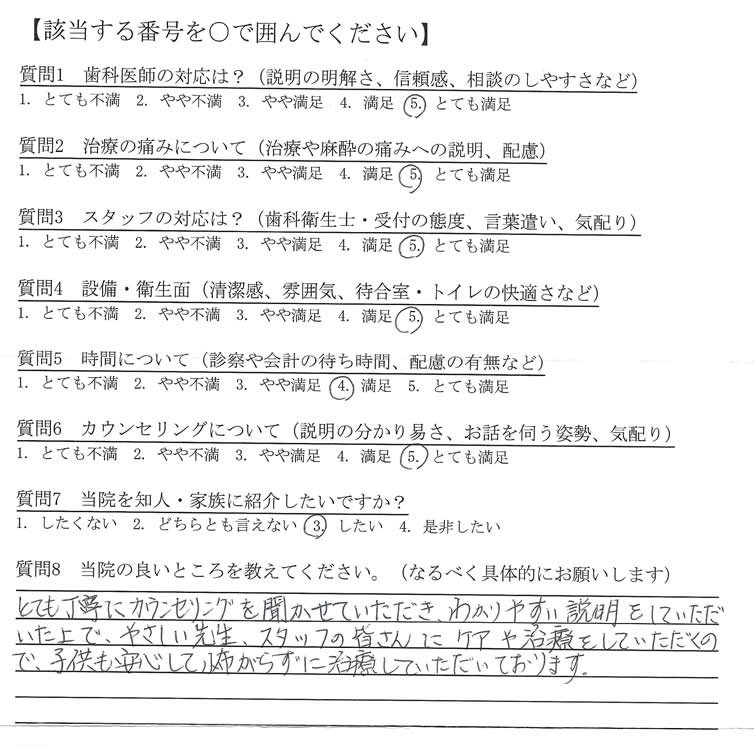 【該当する番号を○で囲んでください】
質問1 歯科医師の対応は？（説明の明解さ、信頼感、相談のしやすさなど）
1. とても不満 2. やや不満 3. やや満足 4. 満足 5. とても満足
質問2 治療の痛みについて（治療や麻酔の痛みへの説明、配慮）
1. とても不満 2. やや不満 3. やや満足 4. 満足 5. とても満足
質問3 スタッフの対応は？（歯科衛生士・受付の態度、言葉遣い、気配り）
1. とても不満 2. やや不満 3. やや満足 4. 満足 5. とても満足
質問4 設備・衛生面（清潔感、雰囲気、待合室・トイレの快適さなど）
1. とても不満 2. やや不満 3. やや満足 4. 満足 5. とても満足
質問5 時間について（診察や会計の待ち時間、配慮の有無など）
1. とても不満 2. やや不満 3. やや満足 4. 満足 5. とても満足
質問6 カウンセリングについて（説明の分かり易さ、お話を伺う姿勢、気配り）
1. とても不満 2. やや不満 3. やや満足 4. 満足 5. とても満足
質問7 当院を知人・家族に紹介したいですか？
1. したくない 2. どちらとも言えない 3. したい 4. 是非したい
質問8 当院の良いところを教えてください。（なるべく具体的にお願いします）
とても丁寧にカウンセリングを聞かせていただき、わかりやすい説明をしていただ
いた上で、やさしい先生、スタッフの皆さんにケアや治療をしていただくの
で、子供も安心して怖がらずに治療していただいております。